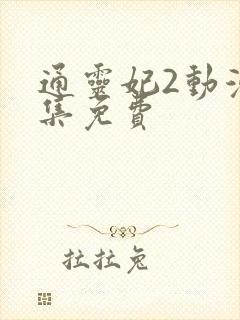 通靈妃2動
集免費
拉拉兔